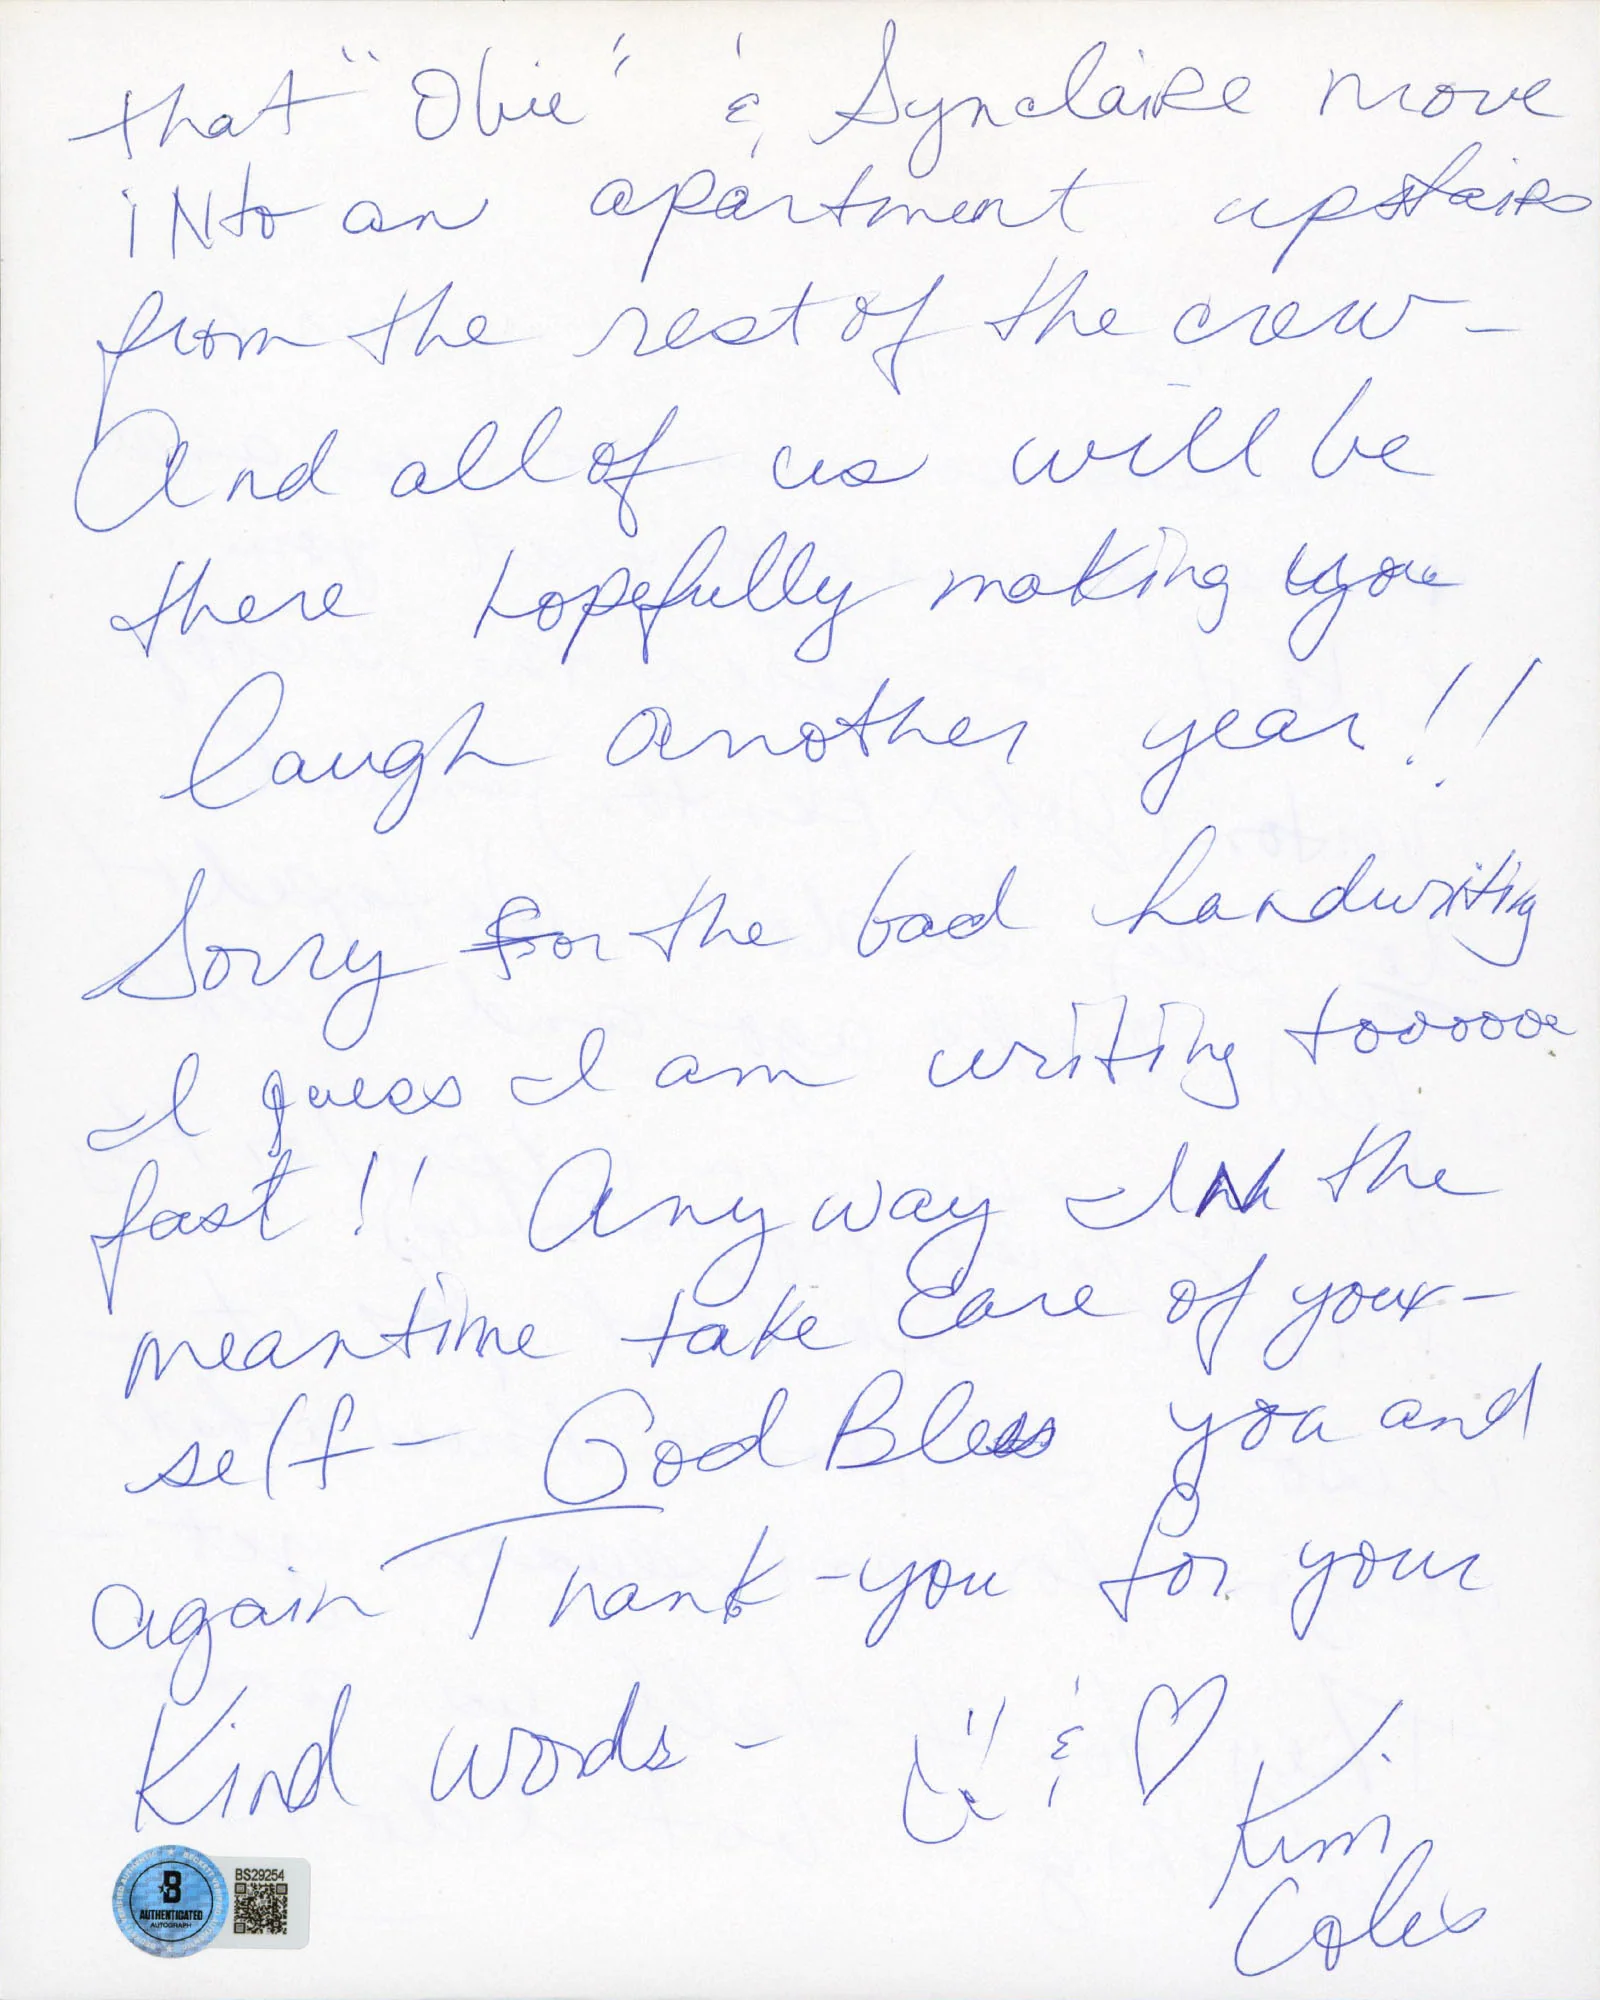 that "Obie" & Synclaire move
iNto an apartment upstairs
from the rest of the crew -
And all of us will be
there hopefully making you
laugh another year!!
Sorry for the bad handwriting
I guess I am writing toooooo
fast!! Anyway - INh the
meantime take care of your-
self - God Bless you and
again Thank-you for your
Kind words - & ♡
Kim
Coles
B
AUTHENTICATED
AUTOGRAPH
BS29254